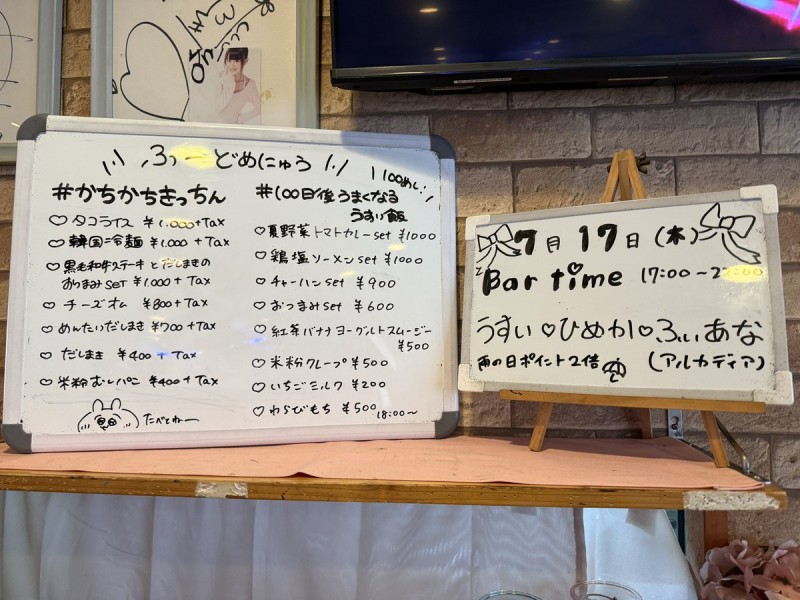 ふーどめにゅう
#かちかちきっちん
♡ タコライス ¥1.000+Tax
♡ 韓国冷麺 ¥1.000 + Tax
♡ 黒毛和牛ステーキとだしまきの
おつまみset ¥1.000 + Tax
♡ チーズオム ¥800+Tax
♡ めんたいだしまき ¥700 + Tax
♡ だしまき ¥400 + Tax
♡ 米粉むしパン ¥400+Tax
たべとねー
100めし!
#100日後うまくなる
うすい飯
♡ 夏野菜トマトカレーset ¥1000
♡ 鶏塩ソーメンset ¥1000
♡ チャーハンset ¥900
♡ おつまみset ¥600
♡ 紅茶バナナヨーグルトスムージー
¥500
♡ 米粉クレープ ¥500
♡ いちごミルク ¥200
♡ わらびもち ¥500
18:00〜
7月17日(木)
Bar time 17:00〜
うすい♡ひめか♡ふぃあな
雨の日ポイント2倍 (アルカディア)